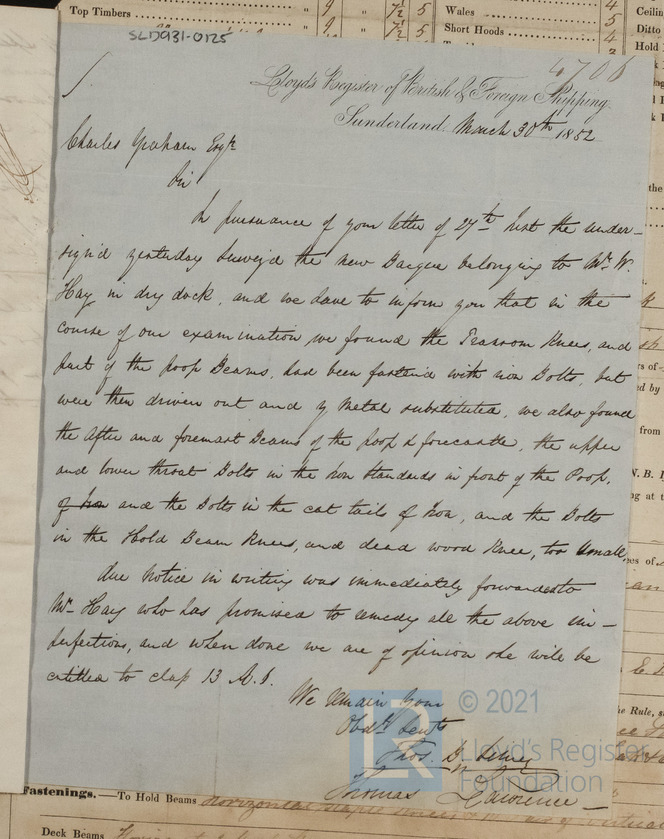 Top Timbers
" 9 " 7½ 5
" 9 " 7½ 5
Wales 4
5
Short Hoods 4
Ceilin
Ditto
Hold
SLD931-0125
4706
Lloyd's Register of British & Foreign Shipping.
Sunderland. March 30th 1852
Charles Graham Esqre
Sir
In pursuance of your letter of 27th Inst the under-
sign'd yesterday Survey'd the new Barque belonging to Mr W.
Hay in dry dock, and we have to inform you that in the
course of our examination we found the Transom Knees, and
part of the poop Beams, had been fastend with iron Bolts, but
were then driven out and y Metal substituted, we also found
the After and foremast Beams of the poop & forecastle, the upper
and lower throat Bolts in the Iron Standards in front of the Poop,
of Iron and the Bolts in the cat tails of Iron, and the Bolts
in the Hold Beam Knees, and dead wood Knee, too Small,
due Notice in writing was immediately forwarded to
Mr Hay who has promised to remedy all the above im-
perfections, and when done we are of opinion she will be
entitled to clap 13 A.1.
We Remain Your
Obdt Servts
Thos
Thomas Lawrence
LR © 2021
Lloyd's Register
Foundation
the Rule,
Fastenings.—To Hold Beams
Deck Beams